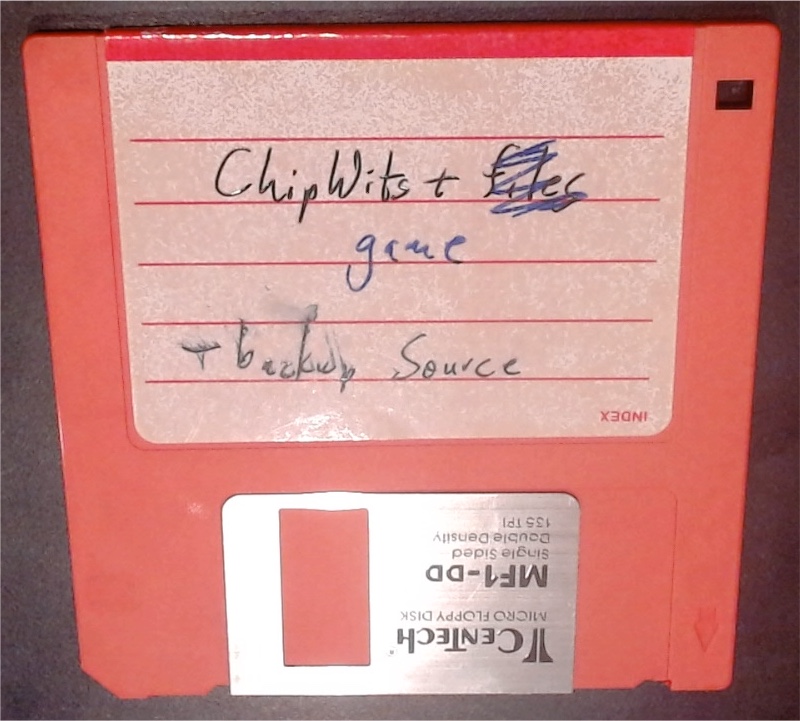 ChipWits + files
game
+ backup Source
INDEX
CENTECH
MICRO FLOPPY DISK
MF1-DD
Single Sided
Double Density
135 TPI